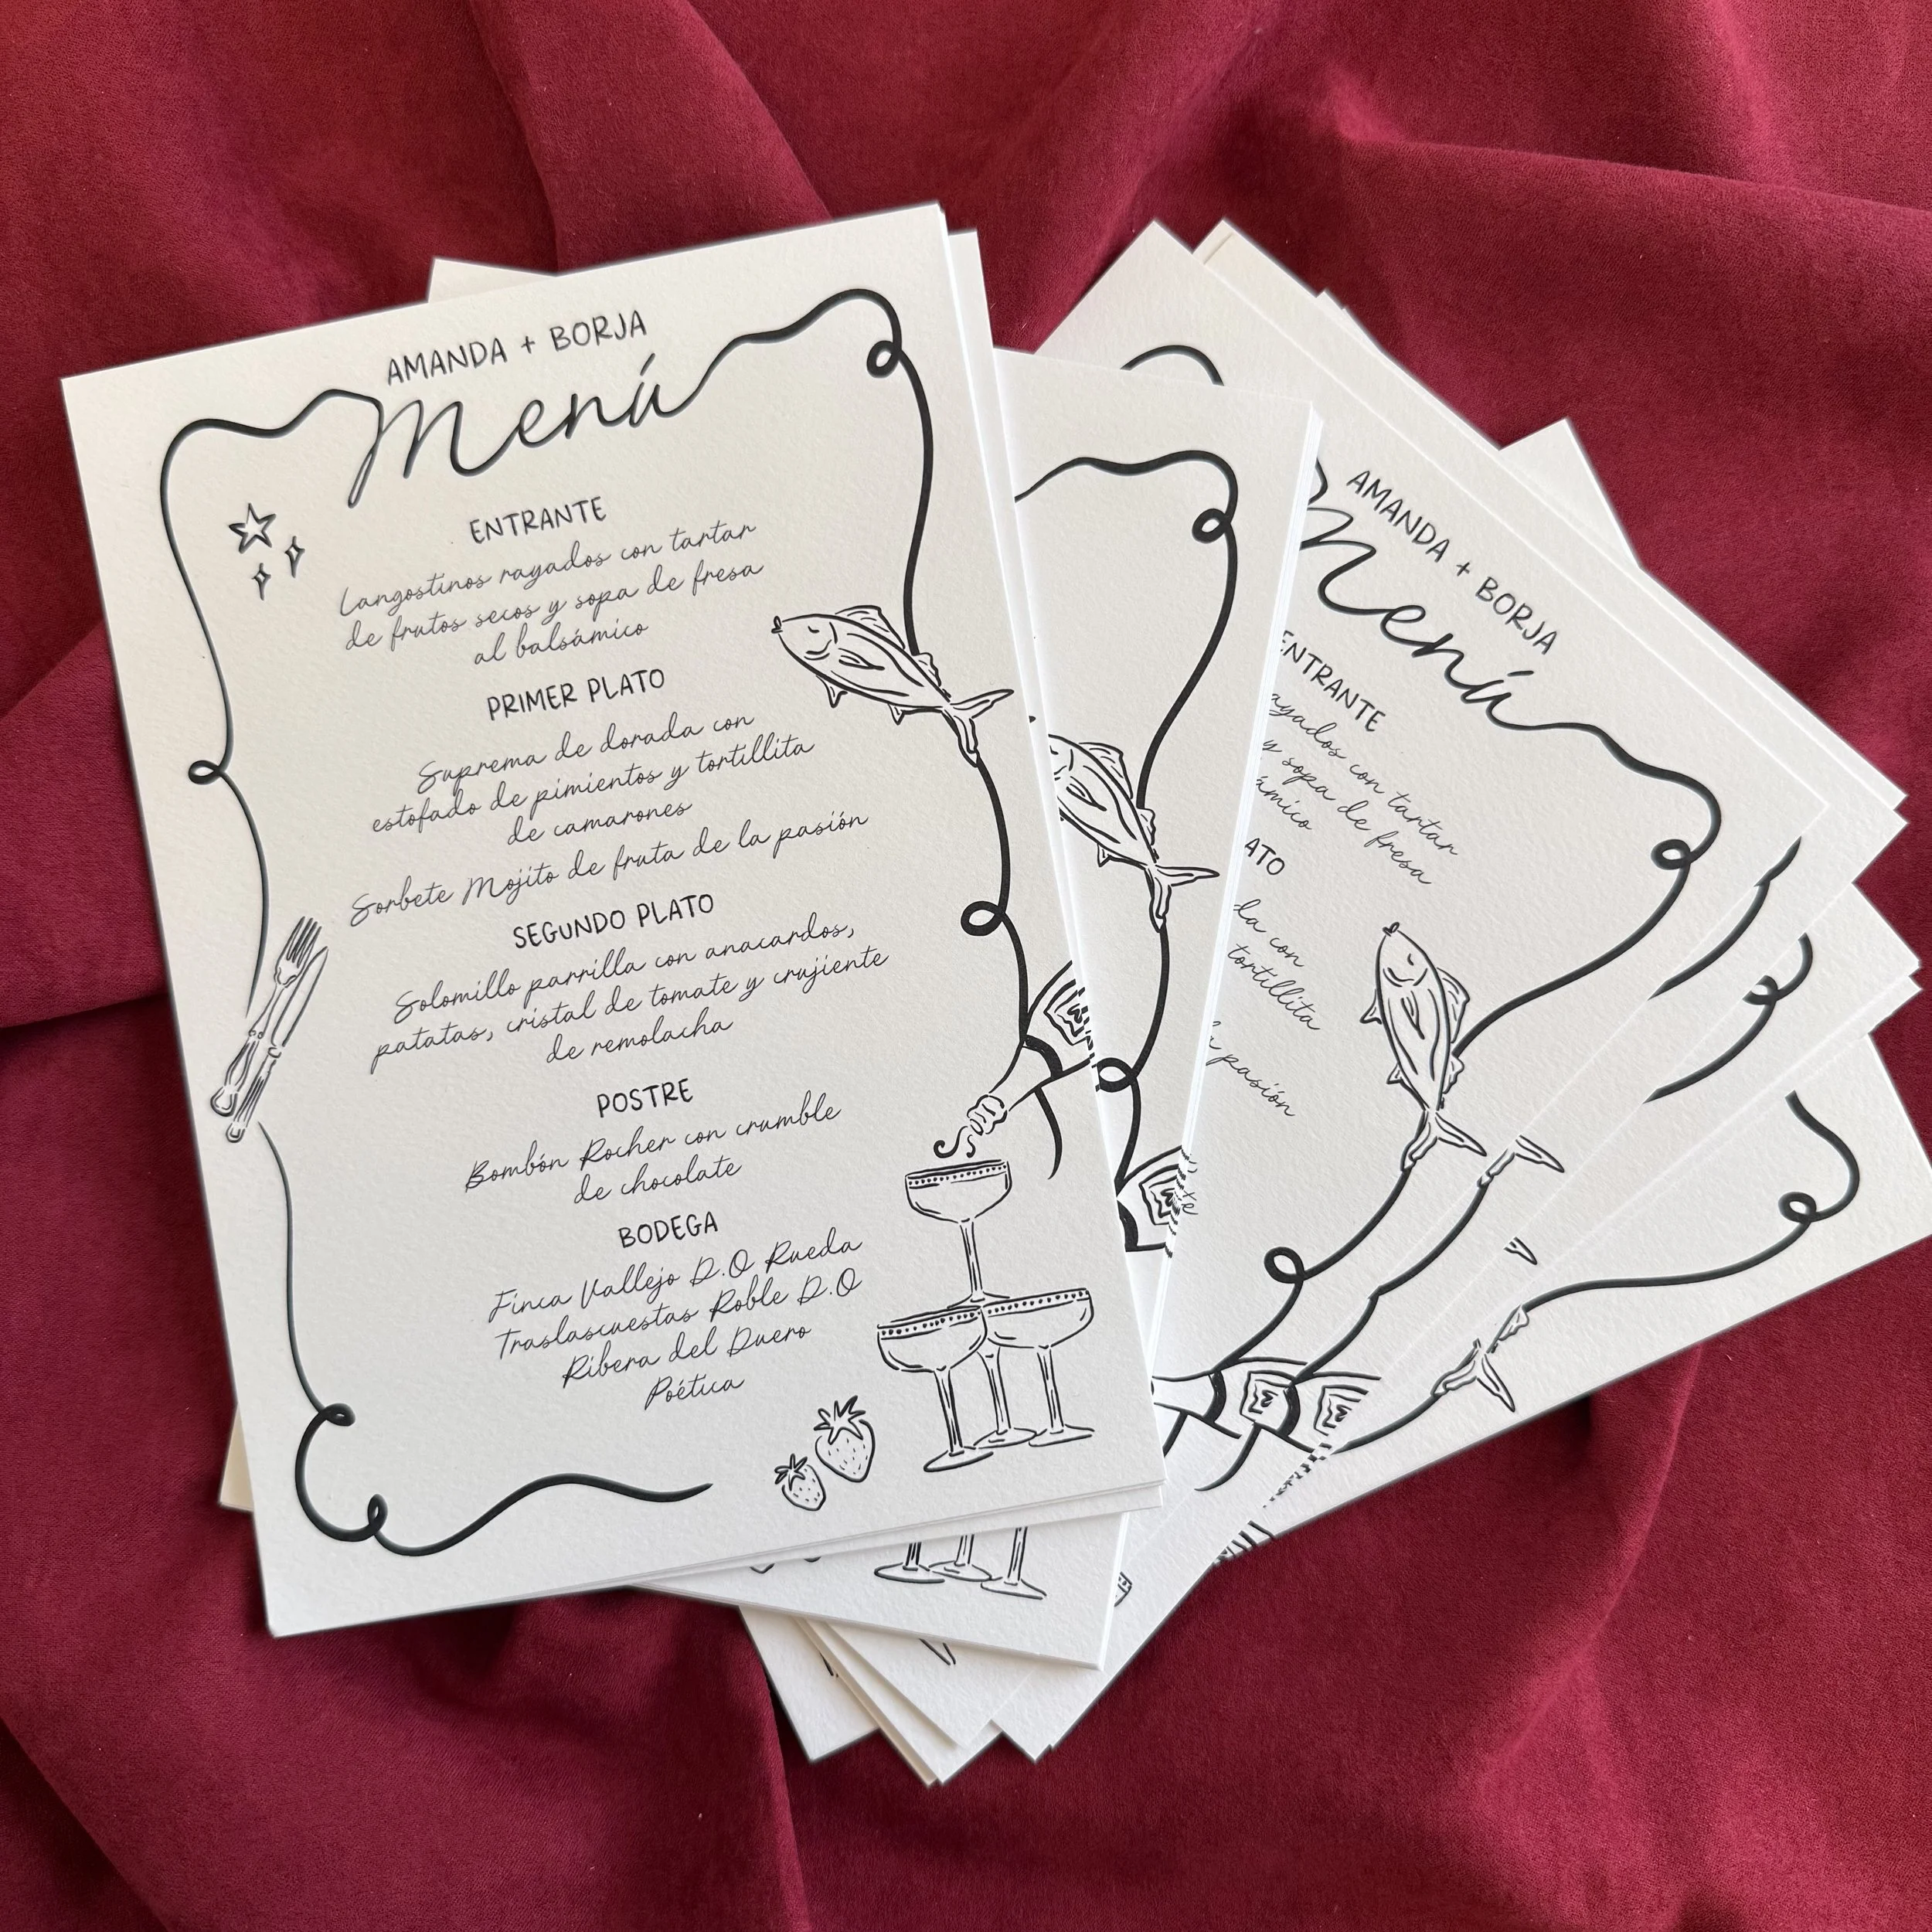 AMANDA + BORJA
Menú
ENTRANTE
Langostinos rayados con tartar
de frutos secos y sopa de fresa
al balsámico
PRIMER PLATO
Suprema de dorada con
estofado de pimientos y tortillita
de camarones
Sorbete Mojito de fruta de la pasión
SEGUNDO PLATO
Solomillo parrilla con anacardos,
patatas, cristal de tomate y crujiente
de remolacha
POSTRE
Bombón Rocher con crumble
de chocolate
BODEGA
Finca Vallejo D.O Rueda
Traslascuestas Roble D.O
Ribera del Duero
Poética
AMANDA + BORJA
Menú
ENTRANTE
rayados con tartar
y sopa de fresa
ámico
ATO
da con
tortillita
la pasión